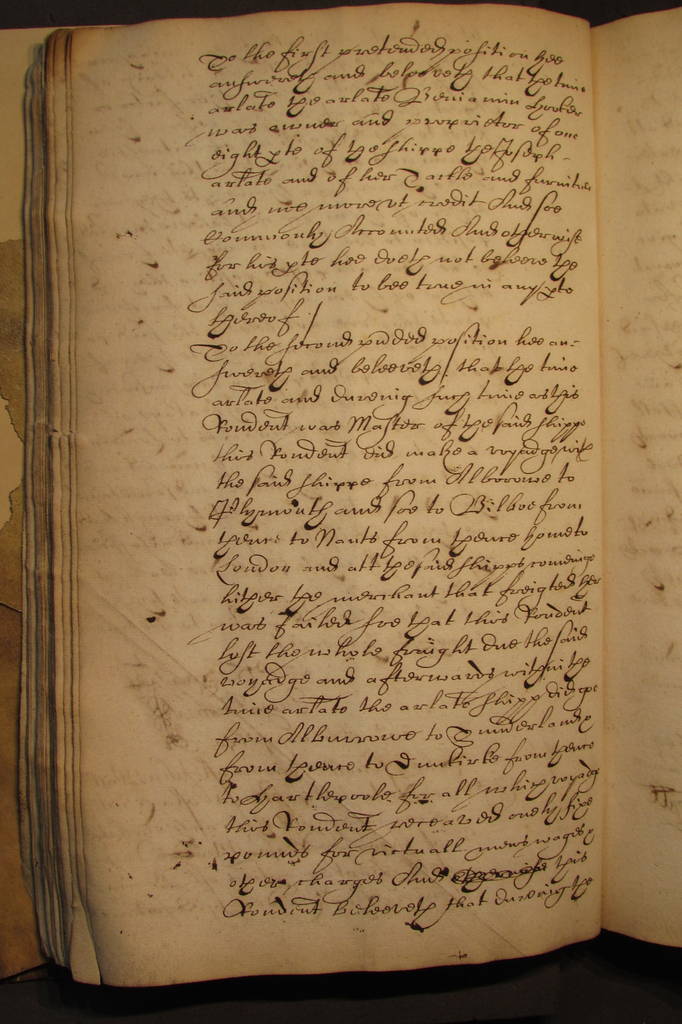 To the first pretended position hee
answereth and beleeveth that the time
arlate the arlate Beniamin Hooker
was owner and proprietor of one
eight pte of the shippe the Joseph
arlate and of her Tackle and furniture
and noe more et credit And soe
Commonly Accounted And otherwise
for his pte hee doeth not beleeve the
said position to bee true in any pte
thereof /
To the second pnded position hee an-
swereth and beleeveth that the time
arlate and dureing such time as this
Rondent was Master of the said shippe
this Rondent did make a voyadge with
the said shippe from Alborowe to
Plymouth and soe to Bilboe from
thence to Nants from thence home to
London and att the said shipps comeinge
hither the merchant that freigted her
was failed soe that this Rondent
lost the whole fraight due the said
voyadge and afterwards within the
time arlate the arlate shipp did goe
from Alburrowe to Sunderland &
from thence to Dunkirke from thence
to Hartlepoole for all which voyadge
this Rondent receaved onely five
pounds for victuall mens wages &
other charges And this
Rondent beleeveth that dureing the